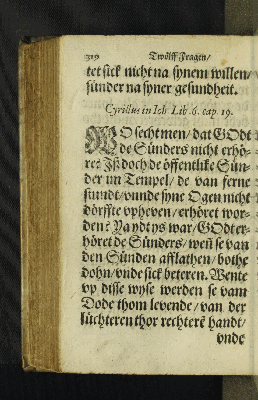 Twölff Fragen/
tet sick nicht na synem willen/
sünder na syner gesundheit.
Cyrillus in Joh Lib. 6. cap. 19.
WO secht men/ dat GOdt
de Sünders nicht erhö-
re? Jß doch de öffentlike Sün-
der im Tempel/ de van ferne
stundt/ vnde syne Ogen nicht
dörffte vpheven/ erhöret wor-
den? Ya ydt ys war/ GOdt er-
höret de Sünders/ wen se van
den Sünden afflathen/ bothe
dohn/ vnde sick beteren. Wente
vp disse wyse werden se vam
Dode thom levende/ van der
lüchteren thor rechterē handt/
vnde